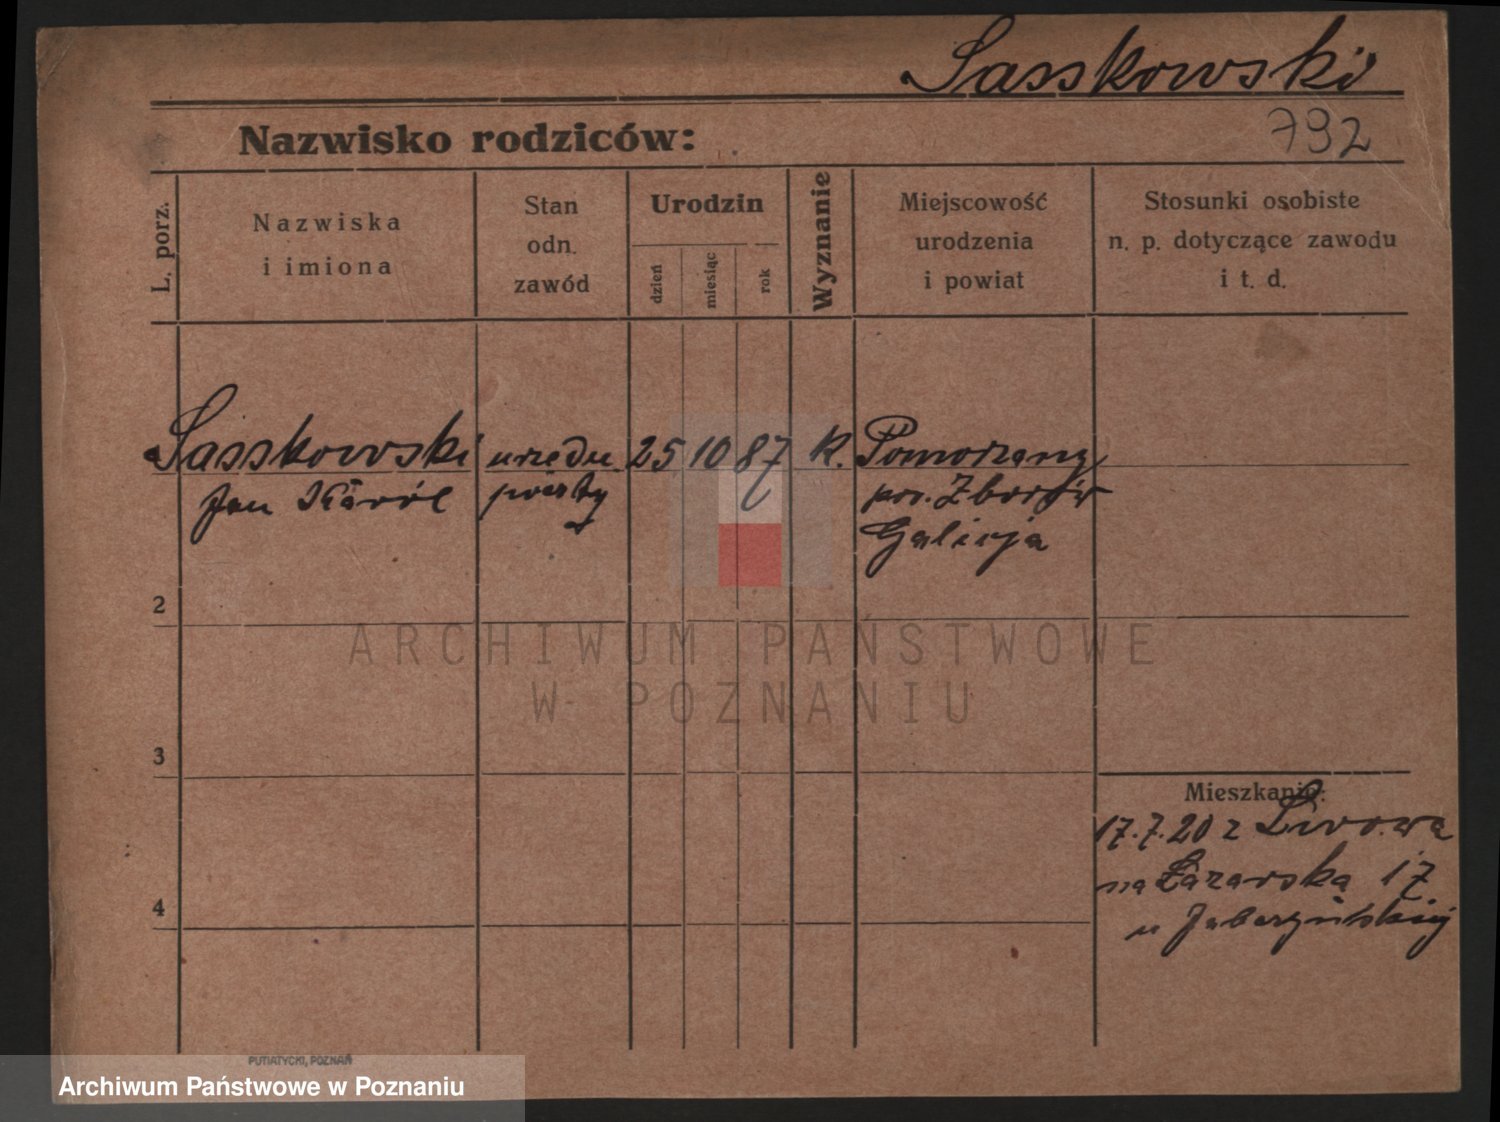 Sasskowski
Nazwisko rodziców:
792
L. porz.
Nazwiska
i imiona
Stan
odn.
zawód
Urodzin
dzień
miesiąc
rok
Wyznanie
Miejscowość
urodzenia
i powiat
Stosunki osobiste
n. p. dotyczące zawodu
i t. d.
Sasskowski urzędn. 25 10 87 k. Pomorzany
Jan Karól poczty pow. Zborów
Galicja
2
ARCHIWUM PAŃSTWOWE
W POZNANIU
3
Mieszkanie:
17.7.20 z Lwowa
na Łazarską 17
u
4
PUTIATYCKI, POZNAŃ
Archiwum Państwowe w Poznaniu